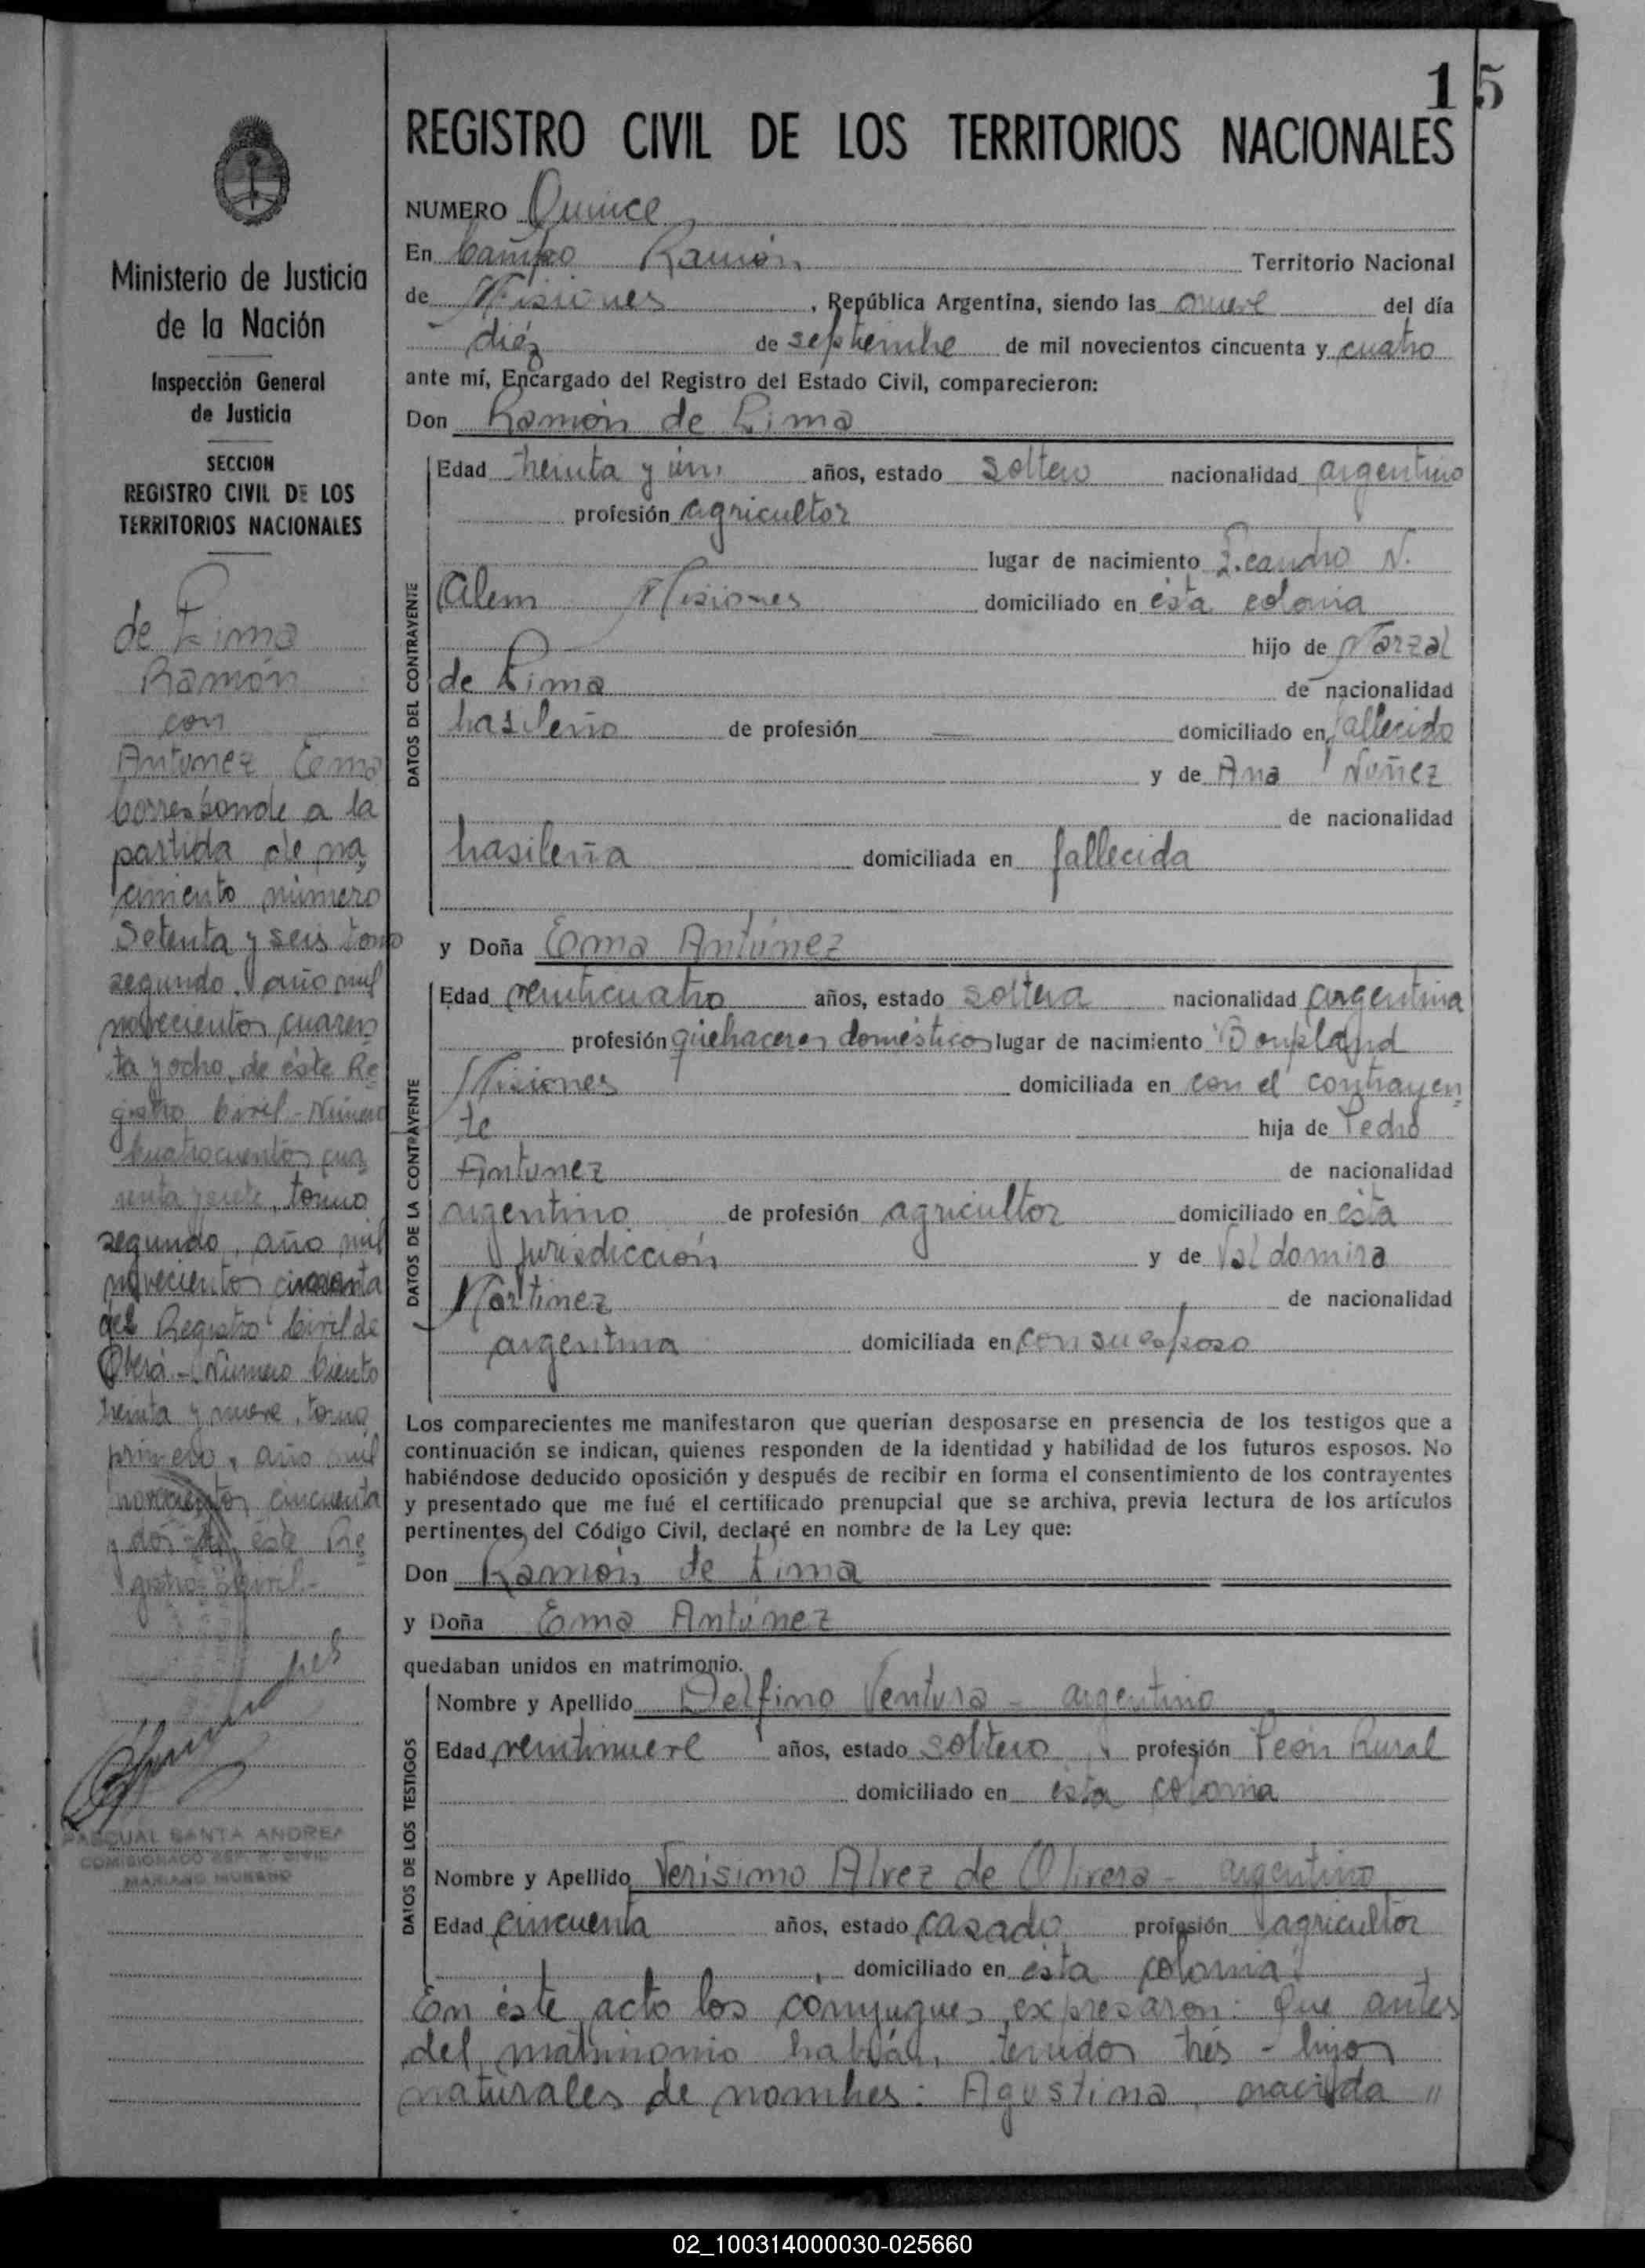 15
REGISTRO CIVIL DE LOS TERRITORIOS NACIONALES
Ministerio de Justicia
de la Nación
Inspección General
de Justicia
SECCION
REGISTRO CIVIL DE LOS
TERRITORIOS NACIONALES
de Lima
Ramón
con
Antunez Ema
Corresponde a la
partida de na
cimiento número
Setenta y seis tomo
segundo, año mil
novecientos cuaren
ta y ocho, de éste Re
gistro Civil - Número
Cuatrocientos cua
renta y siete, tomo
segundo, año mil
novecientos cincuenta
del Registro Civil de
Oberá - Número Ciento
treinta y nueve, tomo
primero, año mil
novecientos cincuenta
y dos de éste Re
gistro Civil -
PASCUAL SANTA ANDREA
COMISIONADO REG. E. CIVIL
MARIANO MORENO
NUMERO Quince
En Campo Ramón Territorio Nacional
de Misiones, República Argentina, siendo las nueve del día
diéz de septiembre de mil novecientos cincuenta y cuatro
ante mí, Encargado del Registro del Estado Civil, comparecieron:
Don Ramón de Lima
DATOS DEL CONTRAYENTE
Edad treinta y un años, estado soltero nacionalidad argentino
profesión agricultor
lugar de nacimiento Leandro N.
Alem Misiones domiciliado en ésta colonia
hijo de Marzal
de Lima de nacionalidad
brasileño de profesión — domiciliado en fallecido
y de Ana Nuñez
de nacionalidad
brasileña domiciliada en fallecida
y Doña Ema Antúnez
DATOS DE LA CONTRAYENTE
Edad veinticuatro años, estado soltera nacionalidad argentina
profesión quehaceres domésticos lugar de nacimiento Bonpland
Misiones domiciliada en con el contrayen
te hija de Pedro
Antunez de nacionalidad
argentino de profesión agricultor domiciliado en ésta
Jurisdicción y de Valdomira
Martinez de nacionalidad
argentina domiciliada en con su esposo
Los comparecientes me manifestaron que querían desposarse en presencia de los testigos que a
continuación se indican, quienes responden de la identidad y habilidad de los futuros esposos. No
habiéndose deducido oposición y después de recibir en forma el consentimiento de los contrayentes
y presentado que me fué el certificado prenupcial que se archiva, previa lectura de los artículos
pertinentes del Código Civil, declaré en nombre de la Ley que:
Don Ramón de Lima
y Doña Ema Antúnez
quedaban unidos en matrimonio.
DATOS DE LOS TESTIGOS
Nombre y Apellido Delfino Ventura - argentino
Edad veintinueve años, estado soltero profesión Peón Rural
domiciliado en ésta colonia
Nombre y Apellido Verisimo Alvez de Olivera - argentino
Edad cincuenta años, estado casado profesión agricultor
domiciliado en ésta colonia
En éste acto los cónyugues expresaron: Que antes
del matrimonio habían tenidos tres - hijos
naturales de nombres: Agustina, nacida "
02_100314000030-025660